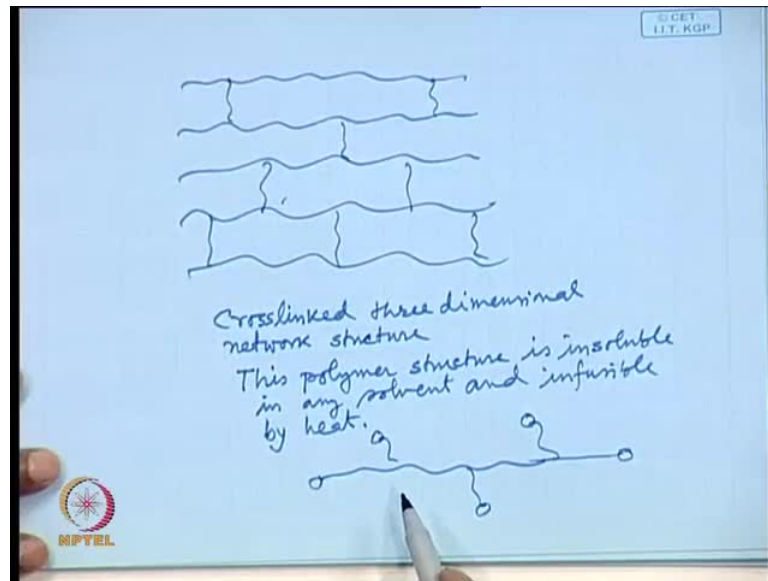 © CET
I.I.T. KGP
Crosslinked three dimensional
network structure
This polymer structure is insoluble
in any solvent and infusible
by heat.
NPTEL